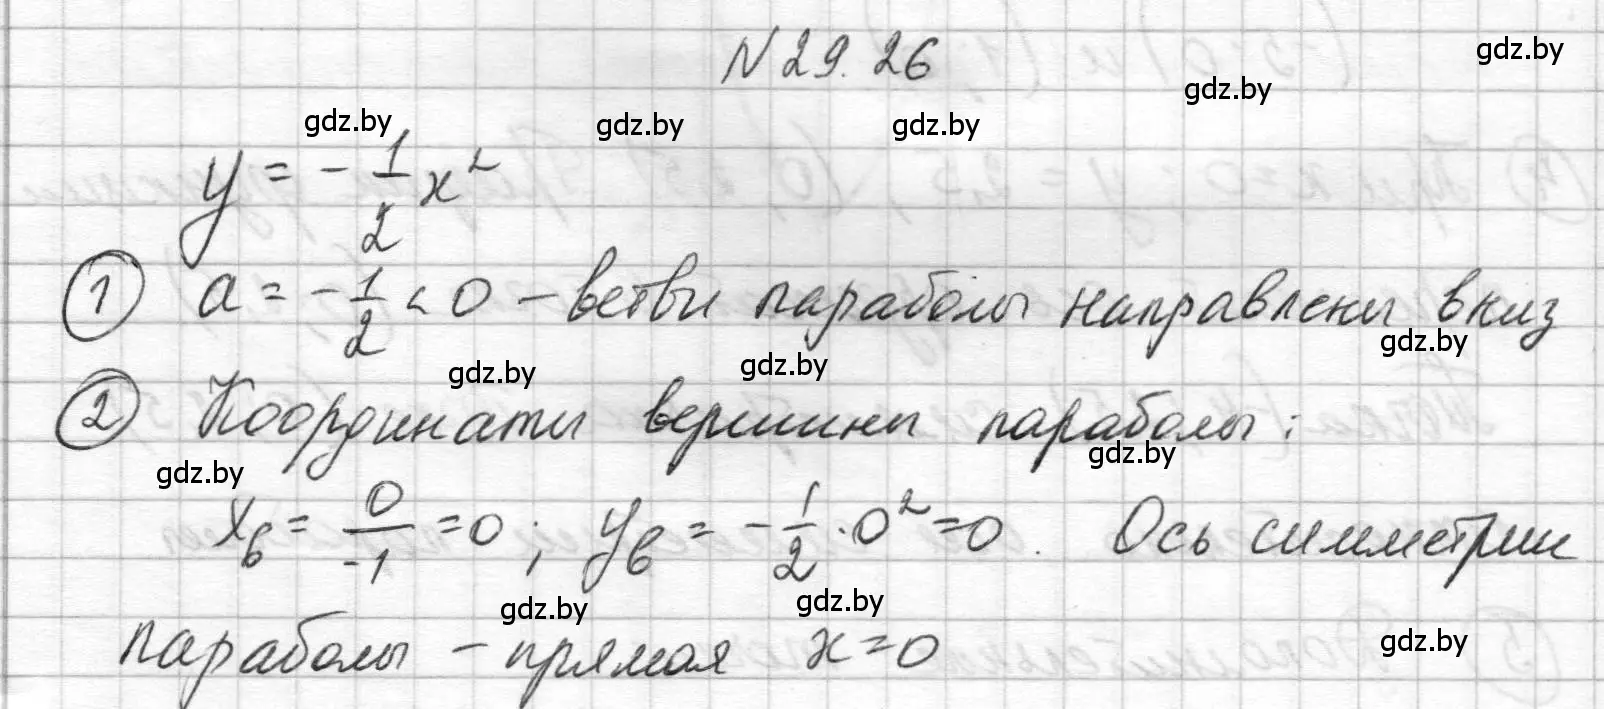 N 29.26
y = -1/2 x²
① a = -1/2 < 0 – ветви параболы направлены вниз
② Координаты вершины параболы:
x_в = 0/-1 = 0; y_в = -1/2 · 0² = 0. Ось симметрии
параболы – прямая x = 0
gdz.by
gdz.by
gdz.by
gdz.by
gdz.by
gdz.by
gdz.by
gdz.by
gdz.by
gdz.by
gdz.by
gdz.by
gdz.by